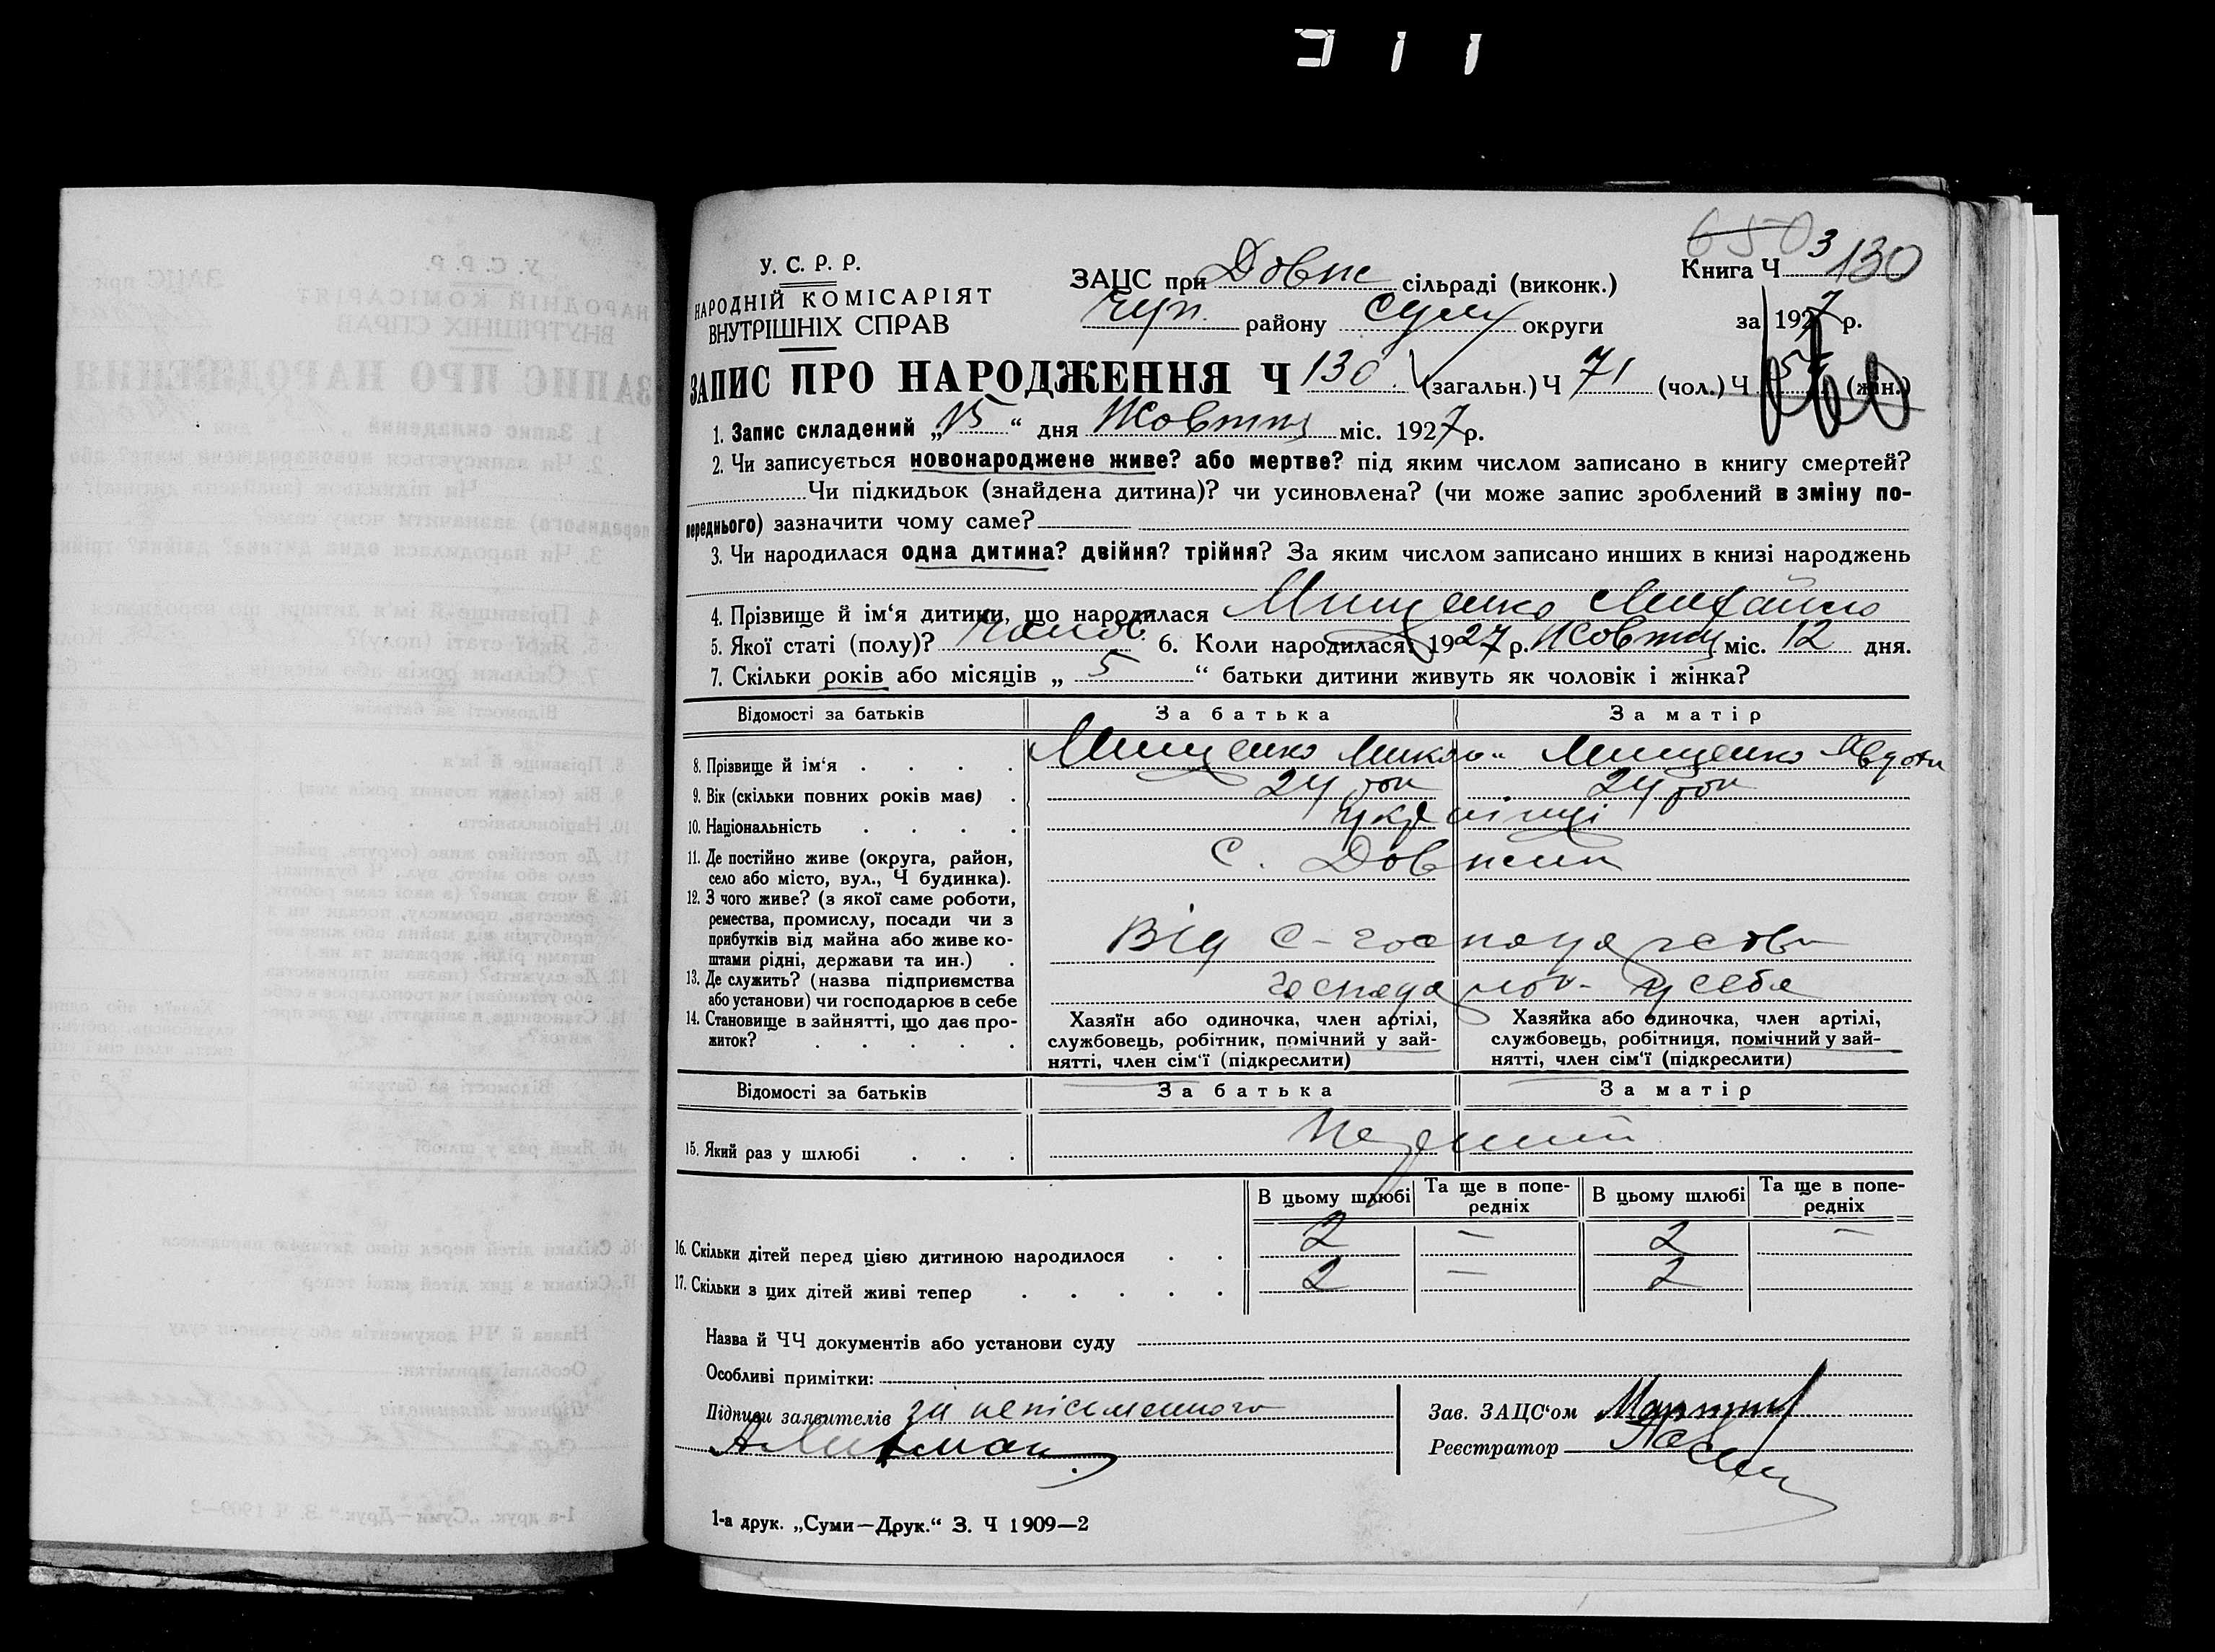 311
6503
У. С. Р. Р.
НАРОДНІЙ КОМІСАРІЯТ
ВНУТРІШНІХ СПРАВ
ЗАЦС при Довж сільраді (виконк.)
Чуп. району Сум округи
Книга Ч 130
за 1927 р.
ЗАПИС ПРО НАРОДЖЕННЯ Ч 130 (загальн.) Ч 71 (чол.) Ч (жін.)
1. Запис складений „15“ дня Жовтня міс. 1927 р.
2. Чи записується новонароджене живе? або мертве? під яким числом записано в книгу смертей?
Чи підкидьок (знайдена дитина)? чи усиновлена? (чи може запис зроблений в зміну по-
переднього) зазначити чому саме?
3. Чи народилася одна дитина? двійня? трійня? За яким числом записано инших в книзі народжень
4. Прізвище й ім‘я дитини, що народилася Мищенко Михайло
5. Якої статі (полу)? Чолов. 6. Коли народилася? 1927 р. Жовтня міс. 12 дня.
7. Скільки років або місяців „ 5 “ батьки дитини живуть як чоловік і жінка?
Відомості за батьків За батька За матір
8. Прізвище й ім‘я . . . . Мищенко Микола Мищенко Авдотя
9. Вік (скільки повних років має) . 24 рок 24 рок
10. Національність . . . . українці
11. Де постійно живе (округа, район,
село або місто, вул., Ч будинка). с. Довжик
12. З чого живе? (з якої саме роботи,
ремества, промислу, посади чи з
прибутків від майна або живе ко-
штами рідні, держави та ин.) . Від с-господарства
13. Де служить? (назва підприємства
або установи) чи господарює в себе господарюв. у себе
14. Становище в зайнятті, що дає про-
житок? . . . . .
Хазяїн або одиночка, член артілі,
службовець, робітник, помічний у зай-
нятті, член сім‘ї (підкреслити)
Хазяйка або одиночка, член артілі,
службовець, робітниця, помічний у зай-
нятті, член сім‘ї (підкреслити)
Відомості за батьків За батька За матір
15. Який раз у шлюбі . . . Перший
В цьому шлюбі Та ще в попе-
редніх В цьому шлюбі Та ще в попе-
редніх
16. Скільки дітей перед цією дитиною народилося . . 2 — 2 —
17. Скільки з цих дітей живі тепер . . . . . 2 — 2
Назва й ЧЧ документів або установи суду
Особливі примітки:
Підписи заявителів за неписьменного
Зав. ЗАЦС‘ом
Реєстратор
1-а друк. „Суми—Друк.“ З. Ч 1909—2